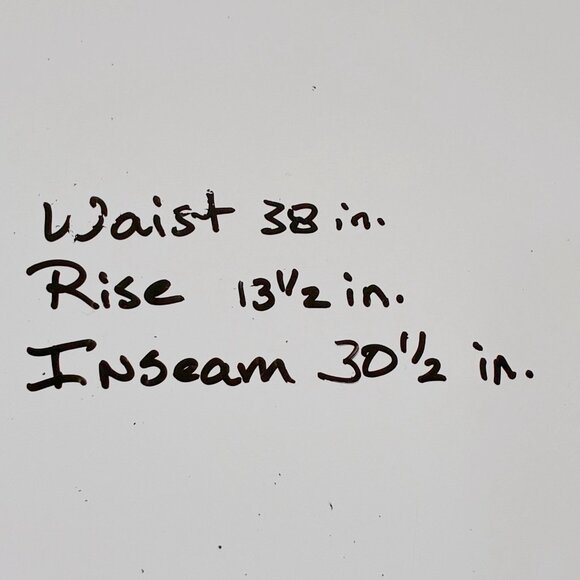 Waist 38 in.
Rise 13 1/2 in.
Inseam 30 1/2 in.